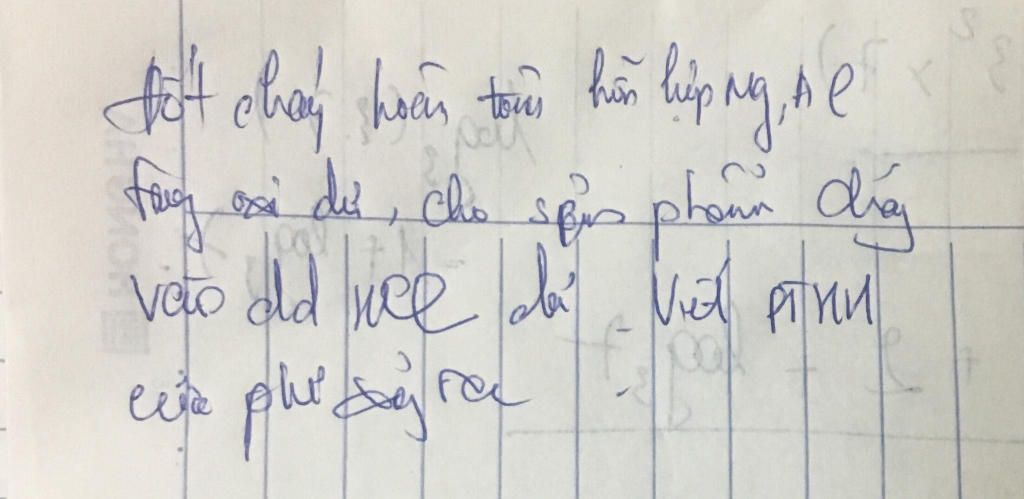 Đốt cháy hoàn toàn hỗn hợp Mg, Al
bằng oxi dư, cho sản phẩm cháy
vào dd HCl dư Viết PTHH
của phư xảy ra